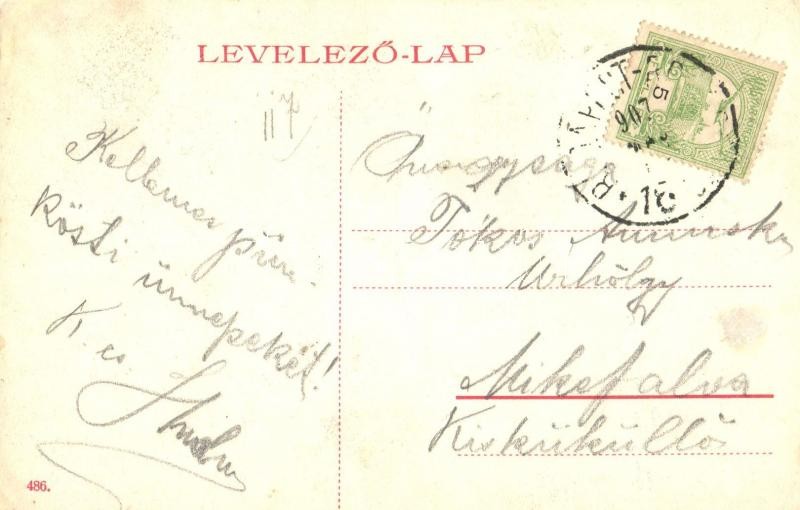 LEVELEZŐ-LAP
117
Kellemes pün-
kösti ünnepeket!
K. cs
Önagysága
Tókos Annuska
Urhölgy
Mikefalva
Kisküküllő
907
16
486.